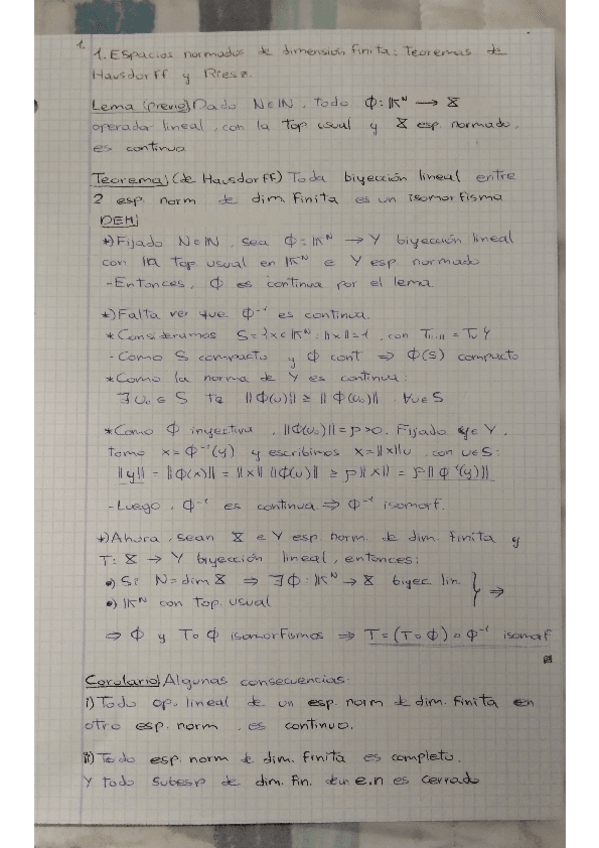 1.
1. Espacios normados de dimensión finita: Teoremas de
Hausdorff y Riesz.
Lema (previo) Dado N∈ℕ, todo Φ: 𝕂ᴺ → X
operador lineal, con la top usual y X esp. normado,
es continua
Teorema (de Hausdorff) Toda biyección lineal entre
2 esp. norm de dim. finita es un isomorfismo
DEM
*) Fijado N∈ℕ, sea Φ: 𝕂ᴺ → Y biyección lineal
con la top usual en 𝕂ᴺ e Y esp normado
- Entonces, Φ es continua por el lema.
*) Falta ver que Φ⁻¹ es continua.
* Consideramos S = {x∈𝕂ᴺ : ||x||=1}, con
- Como S compacto y Φ cont ⇒ Φ(S) compacto
* Como la norma de Y es continua:
∃u₀ ∈ S tq ||Φ(u)|| ≥ ||Φ(u₀)|| ∀u∈S
* Como Φ inyectiva, ||Φ(u₀)|| = ρ>0. Fijado y∈Y,
tomo x = Φ⁻¹(y) y escribimos x = ||x||u, con u∈S:
||y|| = ||Φ(x)|| = ||x|| ||Φ(u)|| ≥ ρ||x|| = ρ||Φ⁻¹(y)||
- Luego, Φ⁻¹ es continua ⇒ Φ⁻¹ isomorf.
*) Ahora, sean X e Y esp norm. de dim. finita y
T: X → Y biyección lineal, entonces:
•) Si N = dim X ⇒ ∃Φ: 𝕂ᴺ → X biyec lin. } ⇒
•) 𝕂ᴺ con top. usual
⇒ Φ y T∘Φ isomorfismos ⇒ T = (T∘Φ)∘Φ⁻¹ isomorf
Corolario Algunas consecuencias:
i) Todo op. lineal de un esp. norm de dim. finita en
otro esp. norm, es continuo.
ii) Todo esp. norm de dim. finita es completo.
Y todo subesp de dim. fin. de un e.n es cerrado